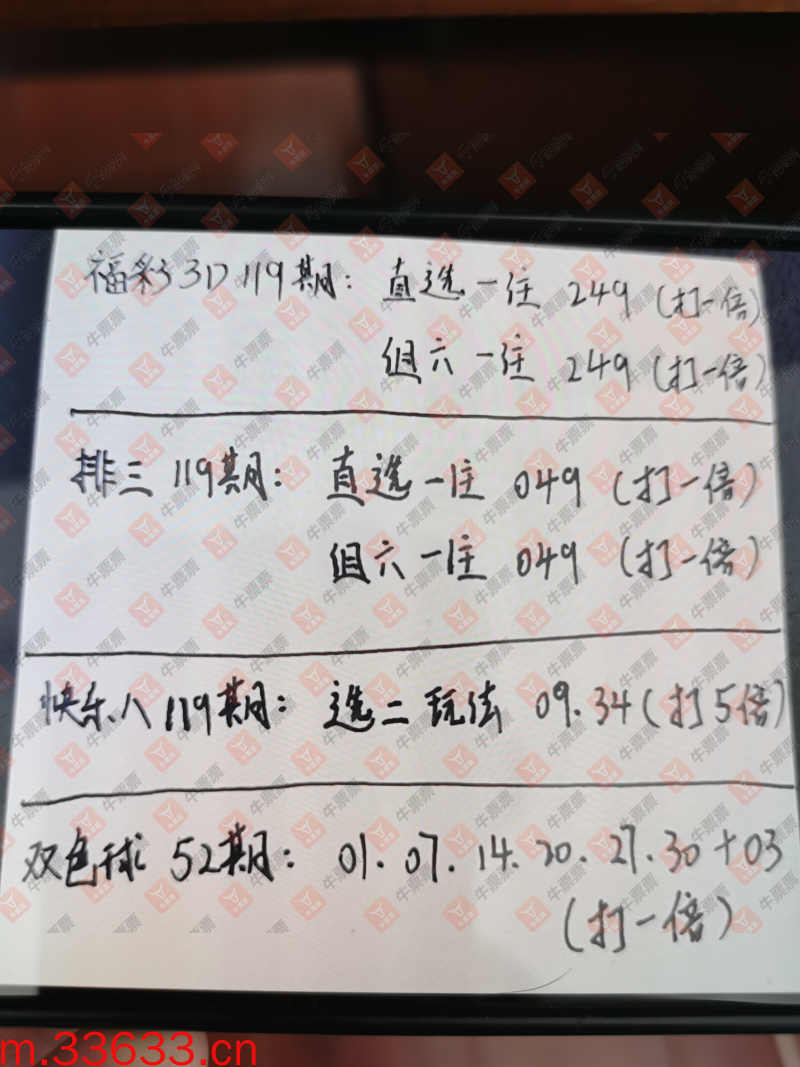 福彩3D 119期: 直选一注 249 (打一倍)
组六一注 249 (打一倍)
排三 119期: 直选一注 049 (打一倍)
组六一注 049 (打一倍)
快乐八 119期: 选二玩法 09.34 (打5倍)
双色球 52期: 01. 07. 14. 20. 27. 30 + 03
(打一倍)
牛票票
m.33633.cn